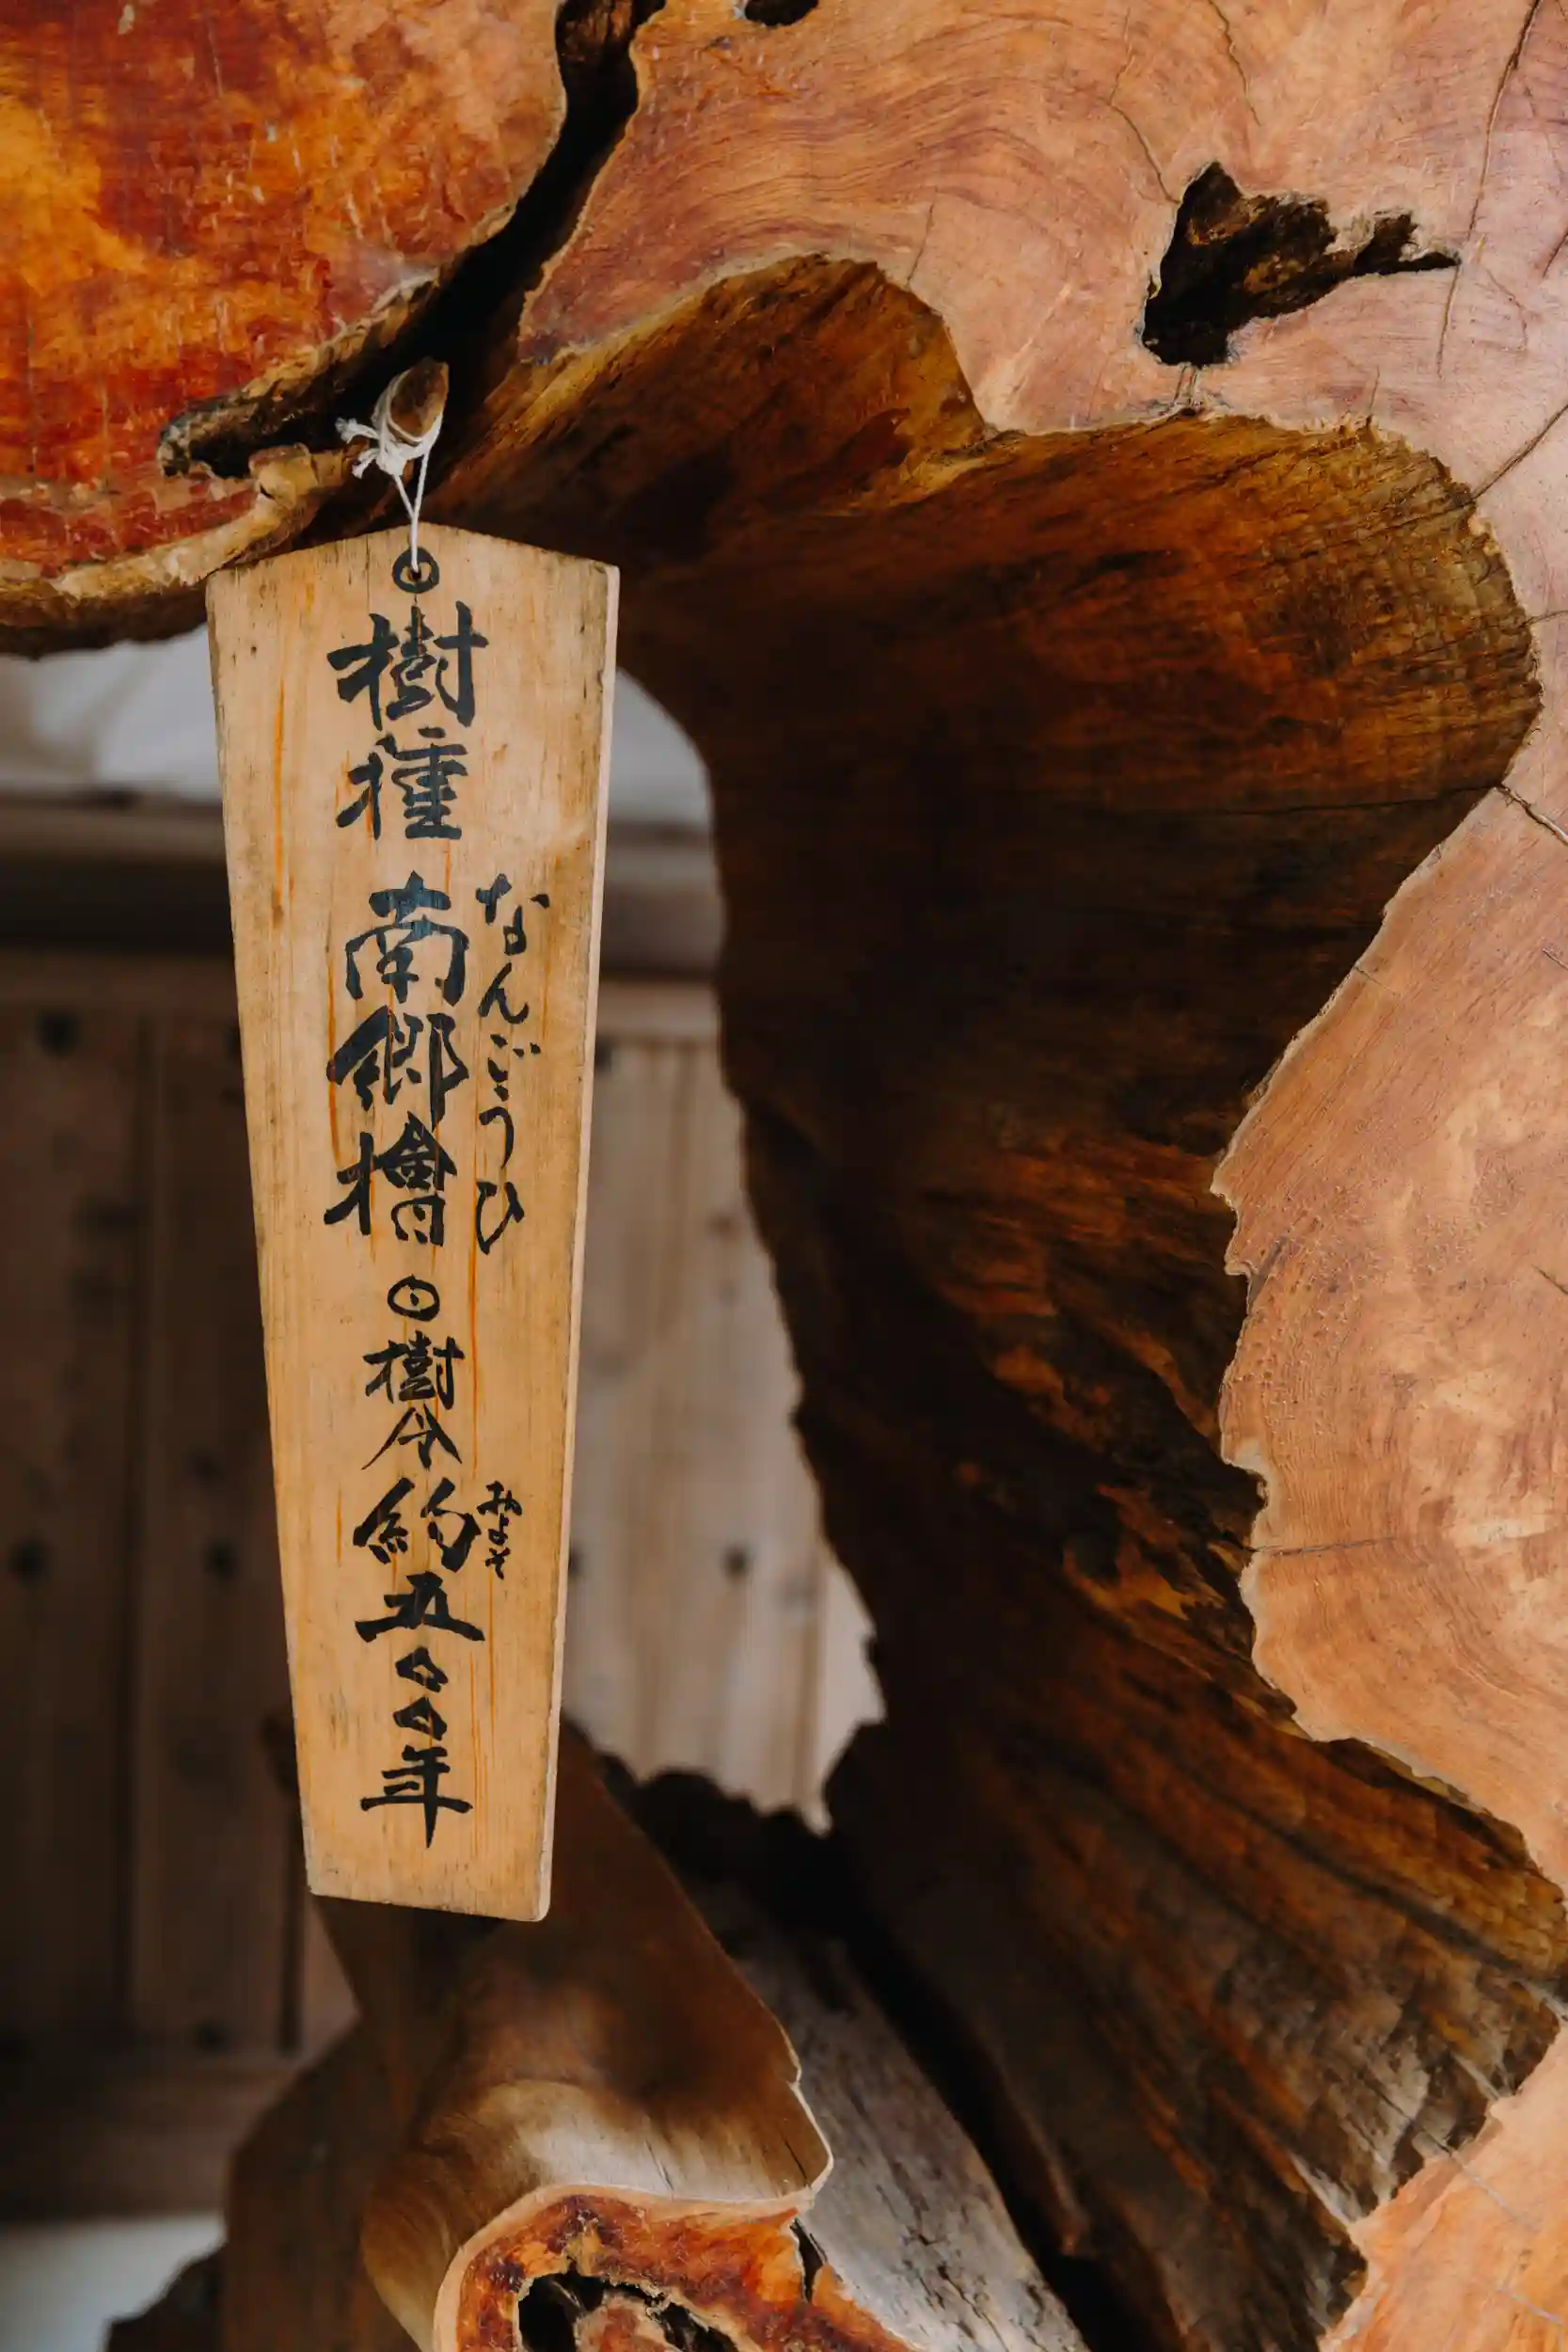 ◎樹種 南郷檜 ◎樹令 約五〇〇年
なんごうひ
およそ